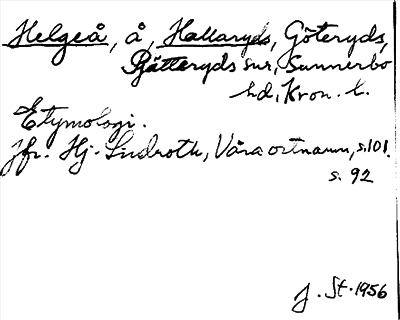 Helgeå, å, Hallaryds, Göteryds,
Pjätteryds snr, Sunnerbo
hd, Kron. l.
Etymologi.
Jfr. Hj. Lindroth, Våra ortnamn, s. 101.
s. 92
J. St. 1956